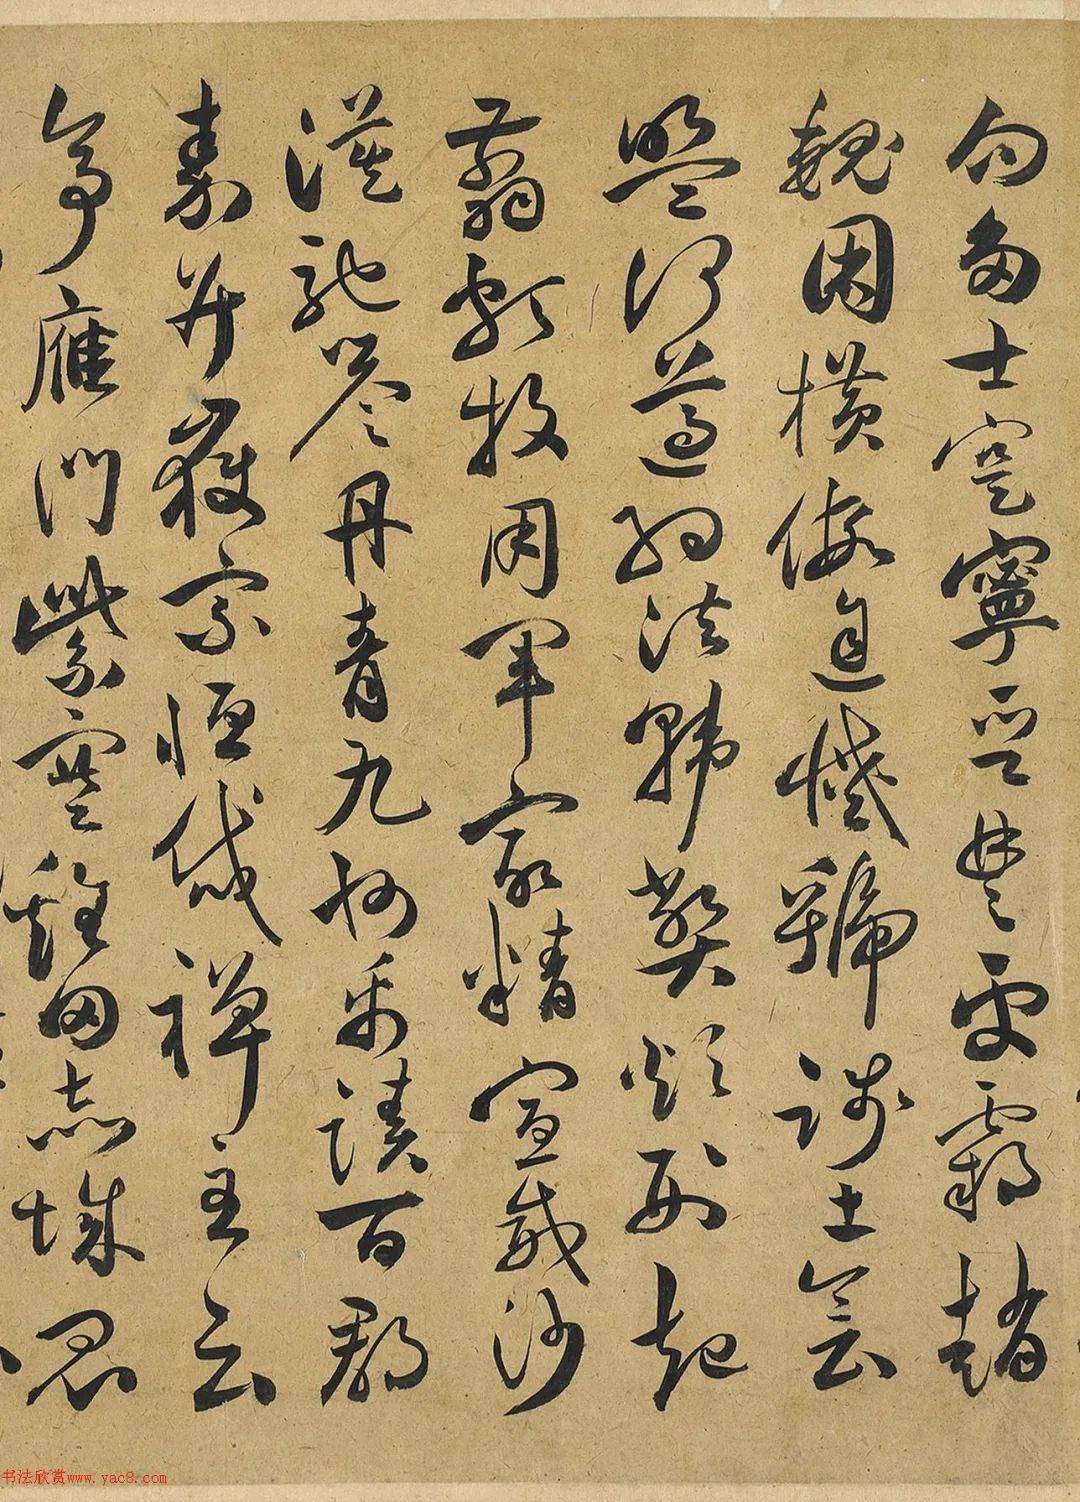 勿多士寔寧晉楚更霸趙
魏困橫假途滅虢踐土會
盟何遵約法韓弊煩刑起
翦頗牧用軍最精宣威沙
漠馳譽丹青九州禹蹟百郡
秦并嶽宗恒岱禪主云
亭雁門紫塞雞田赤城昆
书法欣赏www.yac8.com